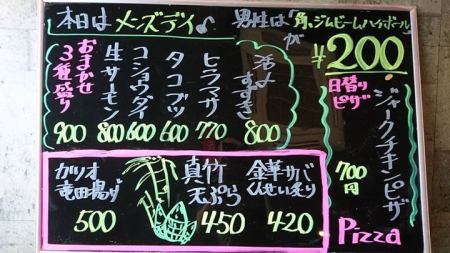 本日はメンズデイ♪ 男性は「角、ジムビームハイボール」が
¥200
日替りピザ
ジャークチキンピザ
700円
Pizza
活〆すずき 800
ヒラマサ 770
タコブツ 600
コショウダイ 600
生サーモン 800
おまかせ3種盛り 900
金華サバくんせい炙り 420
真竹天ぷら 450
カツオ竜田揚げ 500